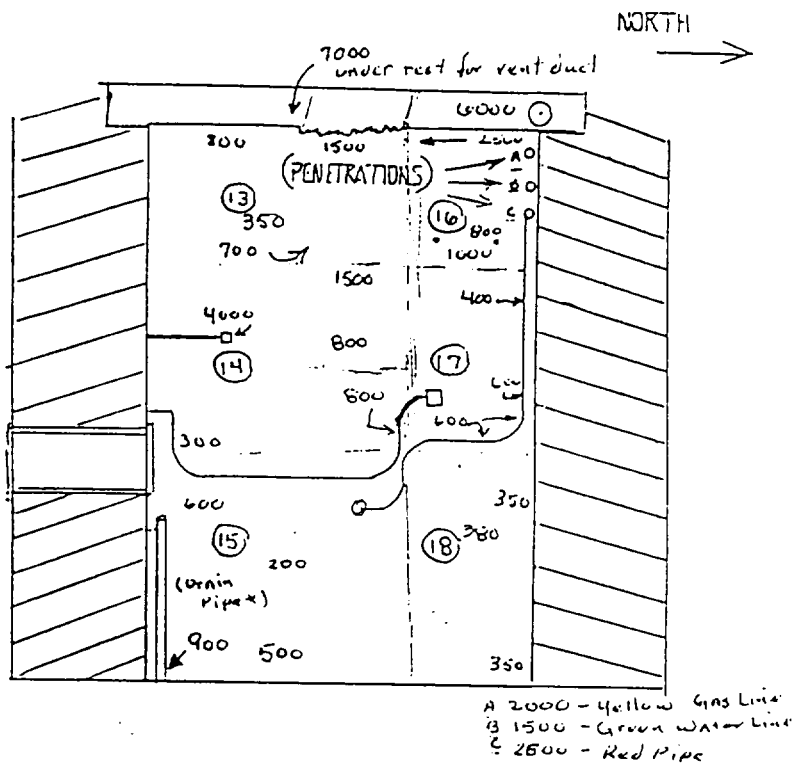 NORTH
7000
under rest for vent duct
6000
800
1500
2500
(PENETRATIONS)
A
B
C
13
350
16
800
1000
700
1500
400
4000
800
14
17
600
300
600
600
350
15
18
380
200
(Drain
Pipe*)
900
500
350
A 2000 - Yellow Gas Line
B 1500 - Green Water Line
C 2600 - Red Pipe